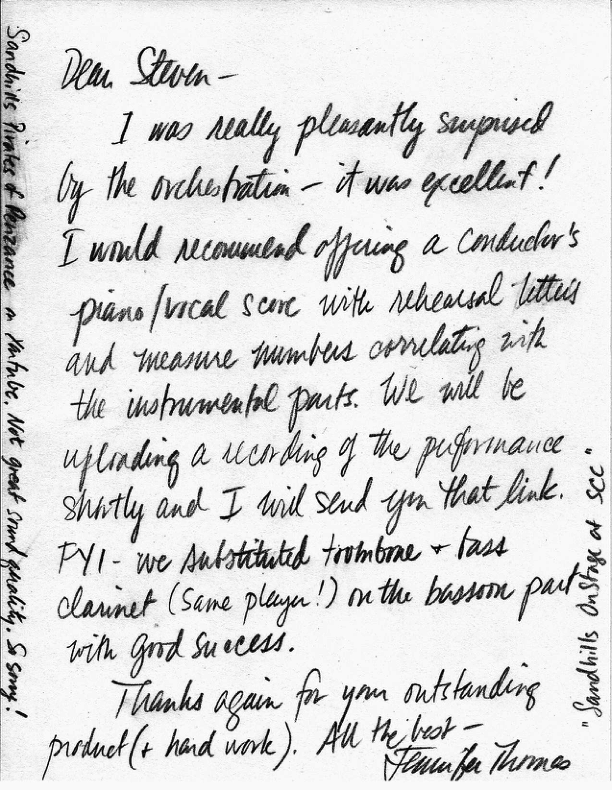 Dear Steven –
I was really pleasantly surprised
by the orchestration – it was excellent!
I would recommend offering a conductor's
piano/vocal score with rehearsal letters
and measure numbers correlating with
the instrumental parts. We will be
uploading a recording of the performance
shortly and I will send you that link.
FYI - we substituted trombone + bass
clarinet (same player!) on the bassoon part
with good success.
Thanks again for your outstanding
product (+ hard work). All the best –
Jennifer Thomas
Sandhills Pirates of Penzance on YouTube. Not great sound quality. So sorry!
"Sandhills OnStage at SCC"